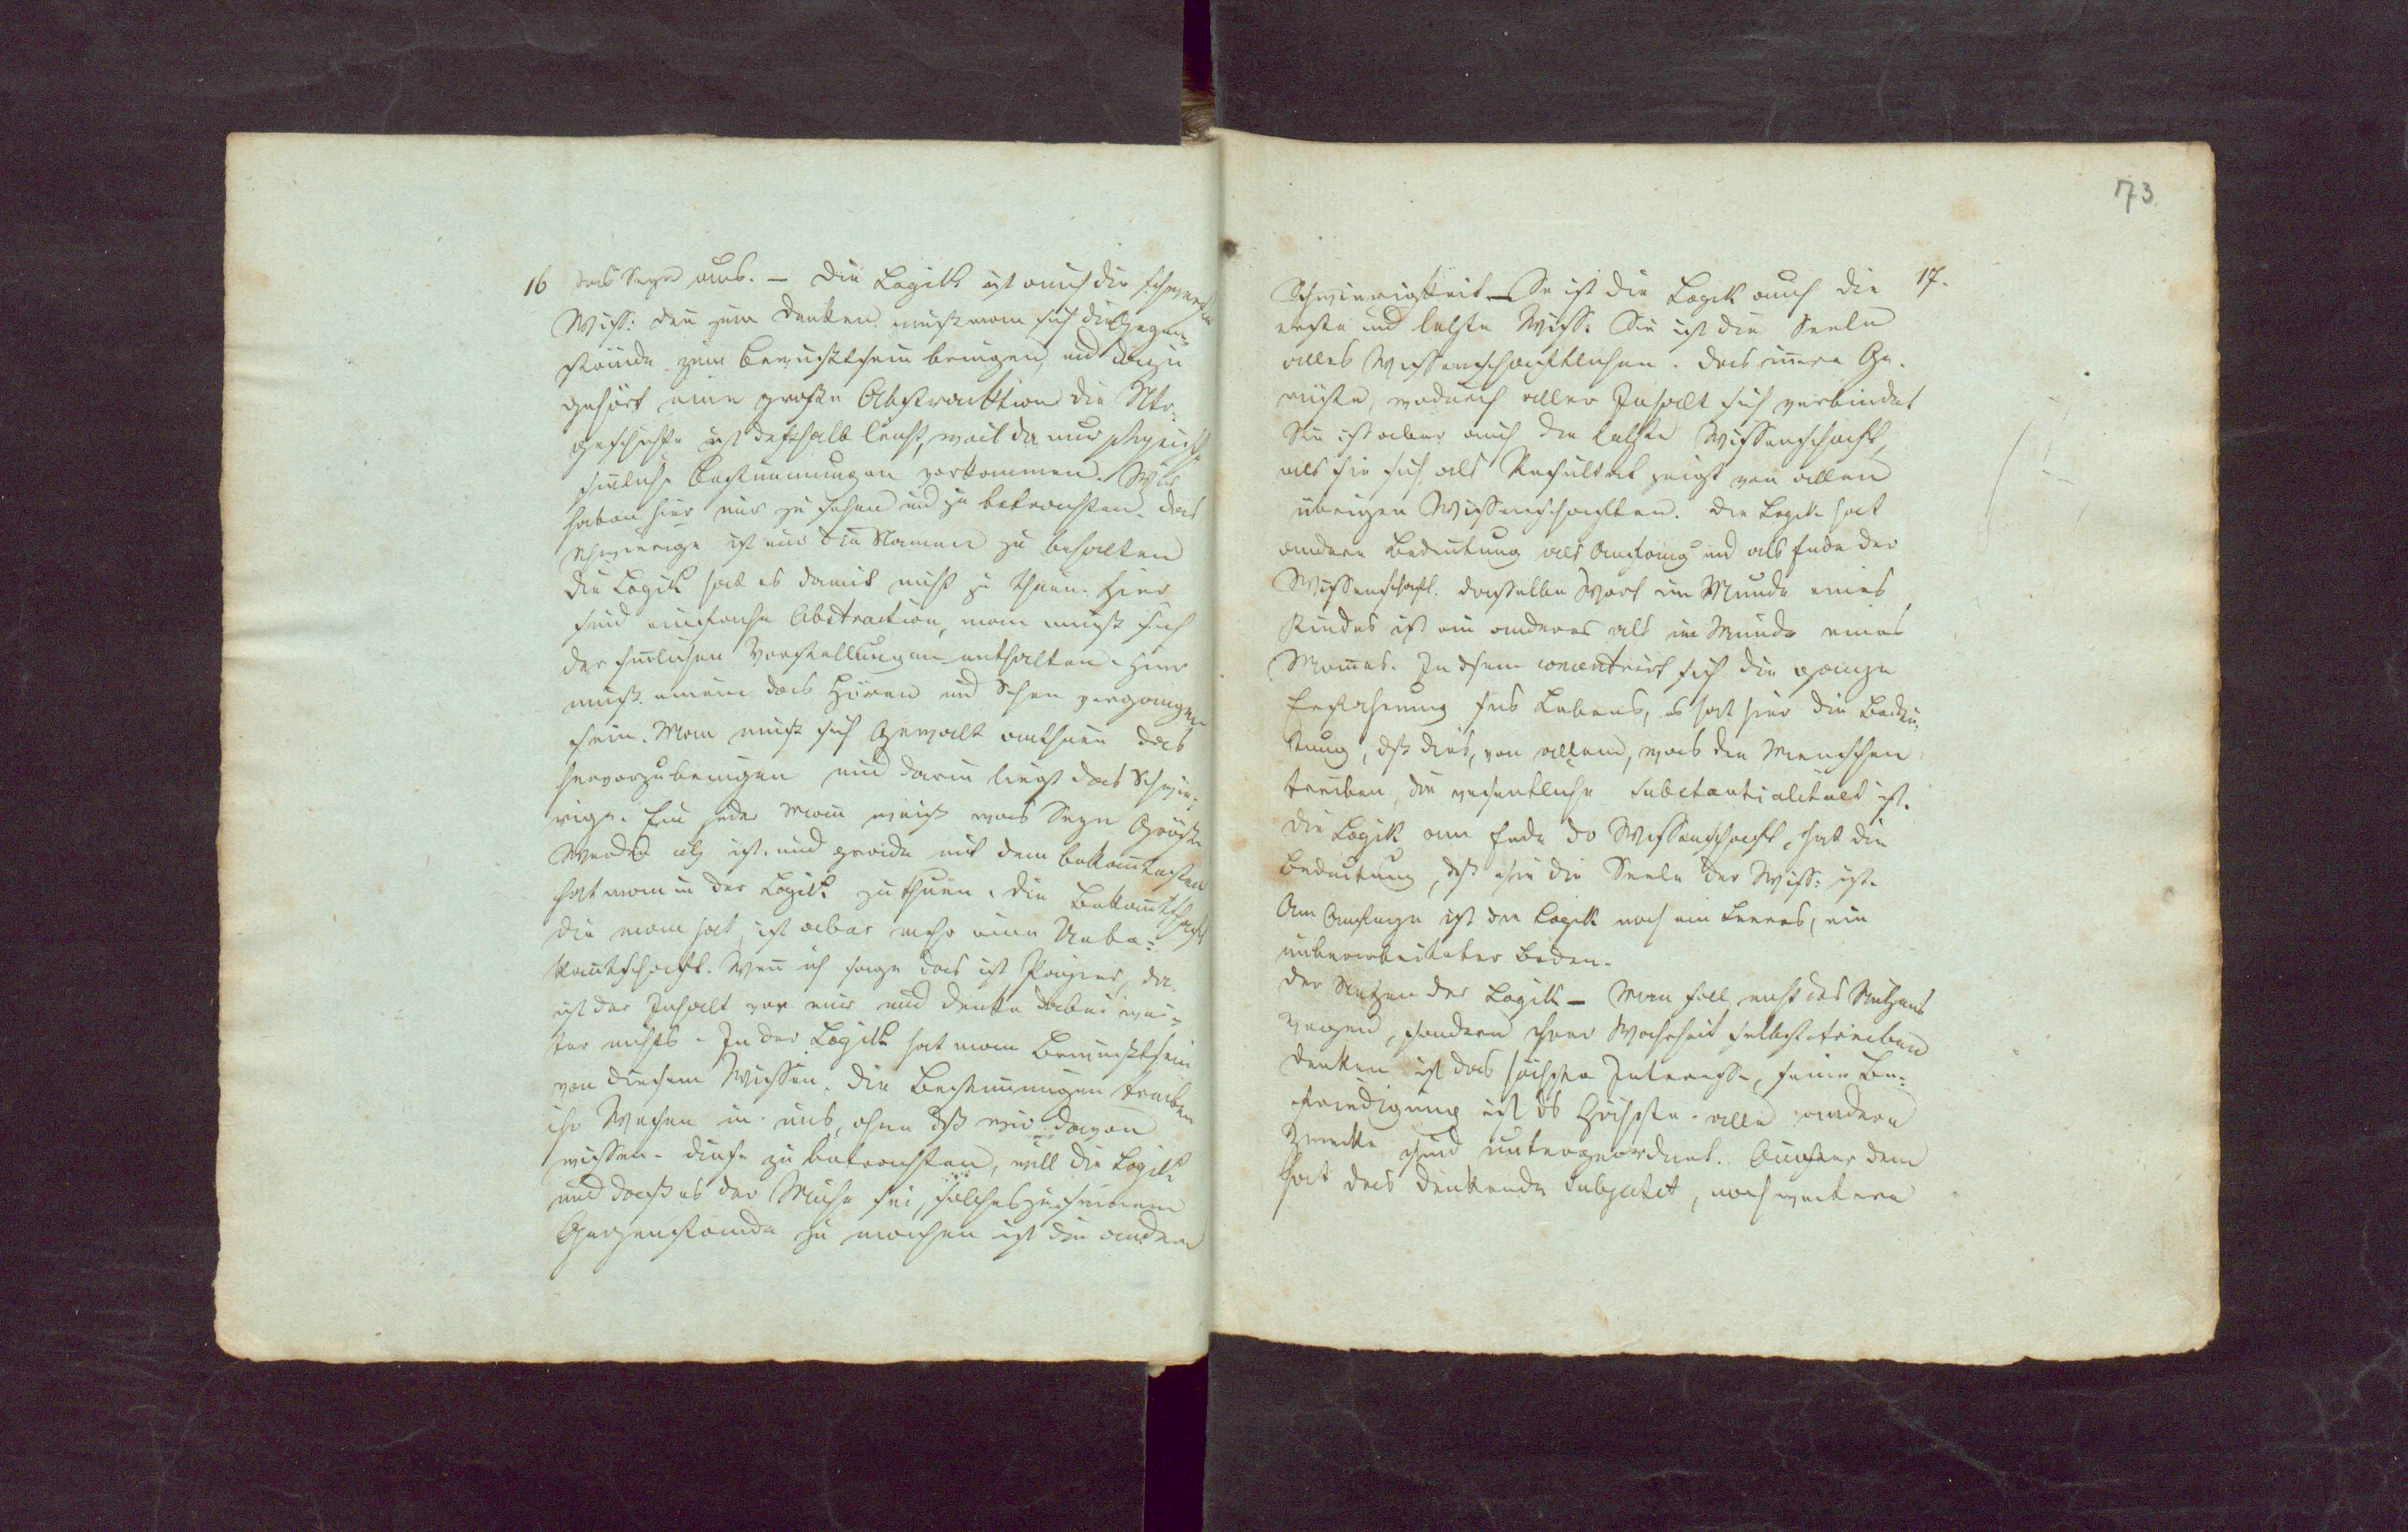 16 das Seyn aus. – Die Logik ist auch die schwerste
Wiss: denn zum Denken muß man sich die Gegen¬
stände zum Bewußtsein bringen, und dazu
gehört eine große Abstraktion die Ntr¬
geschichte ist deßhalb leicht, weil da nur
sinnliche Bestimmungen vorkommen. Wir
haben hier nur zu sehen und zu betrachten. Das
schwierige ist nur die Namen zu behalten
die Logik hat es damit nicht zu thuen. Hier
sind einfache Abstraction, man muß sich
der sinnlichen Vorstellungen enthalten. Hier
muß einem das Hören und Sehen vergangen
sein. Man muß sich Gewalt anthuen das
hervorzubringen und darin liegt das Schwie¬
rige. Ein jeder Mann weiß was Seyn Größe
Werden ist. und grade mit dem bekanntesten
hat man in der Logik zu thuen. Die Bekanntschaft
die man hat, ist aber mehr eine Unbe:
kanntschaft. Wenn ich sage das ist Papier, da
ist der Inhalt vor mir und denke dabei wei¬
ter nichts. In der Logik hat man Bewußtsein
von diesem Wissen. Die Bestimmungen treiben
ihr Wesen in uns, ohne dß wir davon
wissen. diese zu betrachten, will die Logik
und daß es der Mühe sei, solches zu seinem
Gegenstande zu machen ist die andere
73
17.
Schwierigkeit – So ist die Logik auch die
erste und letzte Wiss: Sie ist die Seele
alles Wissenschaftlichen. das innere Ge¬
rüste, wodurch aller Inhalt sich verbindet
Sie ist aber auch die letzte Wissenschaft,
als sie sich als Resultat zeigt von allen
übrigen Wissenschaften. Die Logik hat
andere Bedeutung als Anfang und als Ende der
Wissenschaft. dasselbe Wort im Munde eines
Kindes ist ein anderes als im Munde eines
Mannes. In dsem concentrirt sich die ganze
Erfahrung ss Lebens, es hat hier die Bedeu¬
tung, dß dies, von allem, was die Menschen
treiben, die wesentliche Substantialität ist.
die Logik am Ende dr Wissenschaft, hat die
Bedeutung, dß sie die Seele der Wiss: ist.
Am Anfange ist die Logik noch ein Leeres, ein
unbearbeiteter Boden.
Der Nutzen der Logik – Man soll nicht des Nutzens
wegen, sondern ihrer Wahrheit selbst treiben
denken ist das höchste Interesse, seine Be:
friedigung ist ds Höchste. alle andere
Zwecke sind untergeordnet. Außer dem
hat das denkende Subjekt, noch weitere